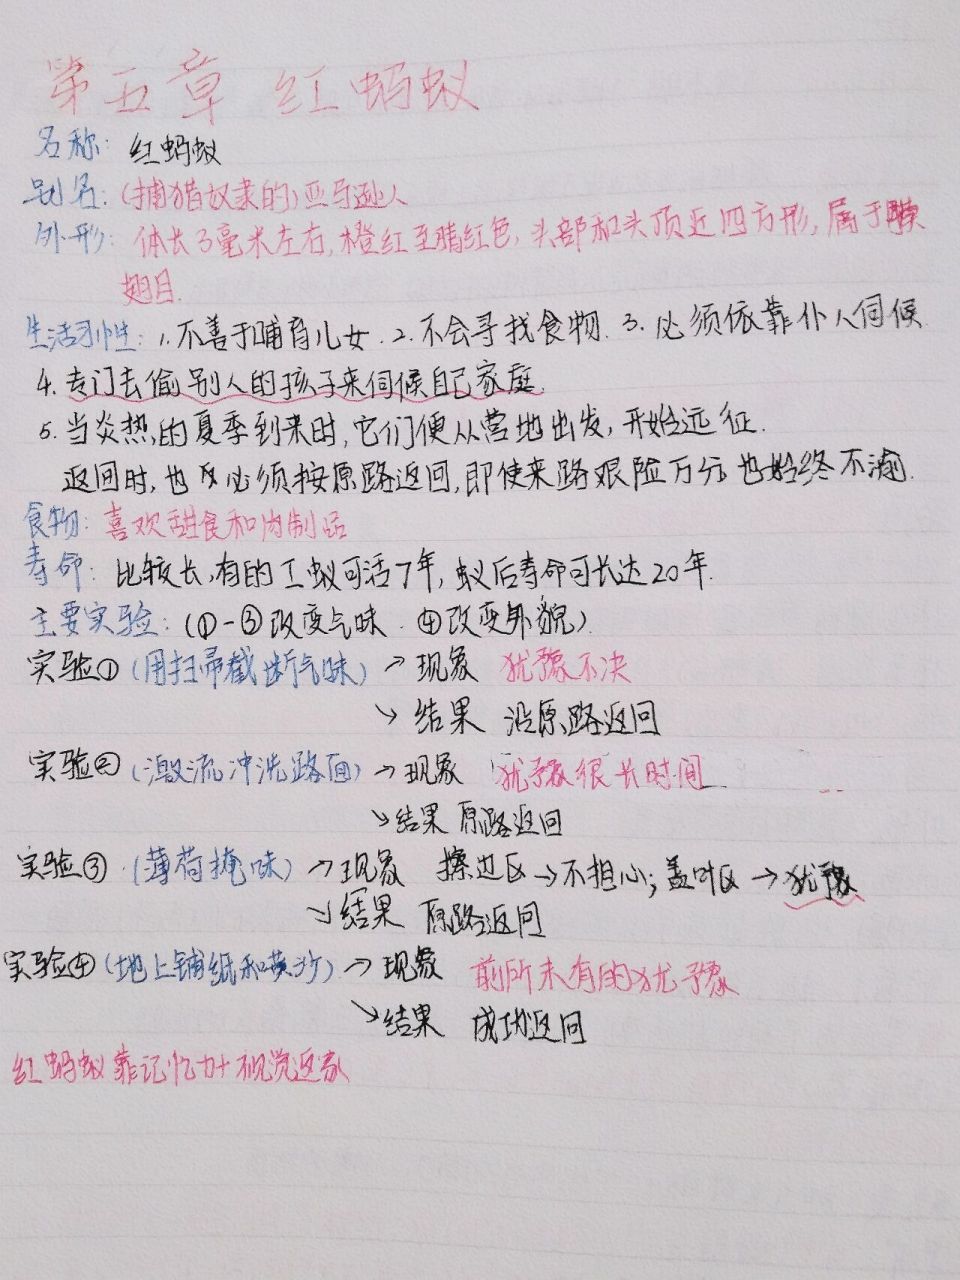 第五章 红蚂蚁
名称: 红蚂蚁
别名: (捕猎奴隶的)亚马逊人
外形: 体长3毫米左右, 橙红至暗红色, 头部和头顶近四方形, 属于膜
翅目.
生活习性: 1. 不善于哺育儿女. 2. 不会寻找食物. 3. 必须依靠仆人伺候.
4. 专门去偷别人的孩子来伺候自己家庭.
5. 当炎热的夏季到来时, 它们便从营地出发, 开始远征.
返回时, 也必须按原路返回, 即使来路艰险万分也始终不渝.
食物: 喜欢甜食和肉制品
寿命: 比较长, 有的工蚁可活7年, 蚁后寿命可长达20年.
主要实验: (①-③改变气味. ④改变外貌).
实验① (用扫帚截断气味) → 现象 犹豫不决
↘ 结果 沿原路返回
实验② (激流冲洗路面) → 现象 犹豫很长时间
↘ 结果 原路返回
实验③ (薄荷掩味) → 现象 擦边区 → 不担心; 盖叶区 → 犹豫
↘ 结果 原路返回
实验④ (地上铺纸和黄沙) → 现象 前所未有的犹豫
↘ 结果 成功返回
红蚂蚁靠记忆力+视觉返家